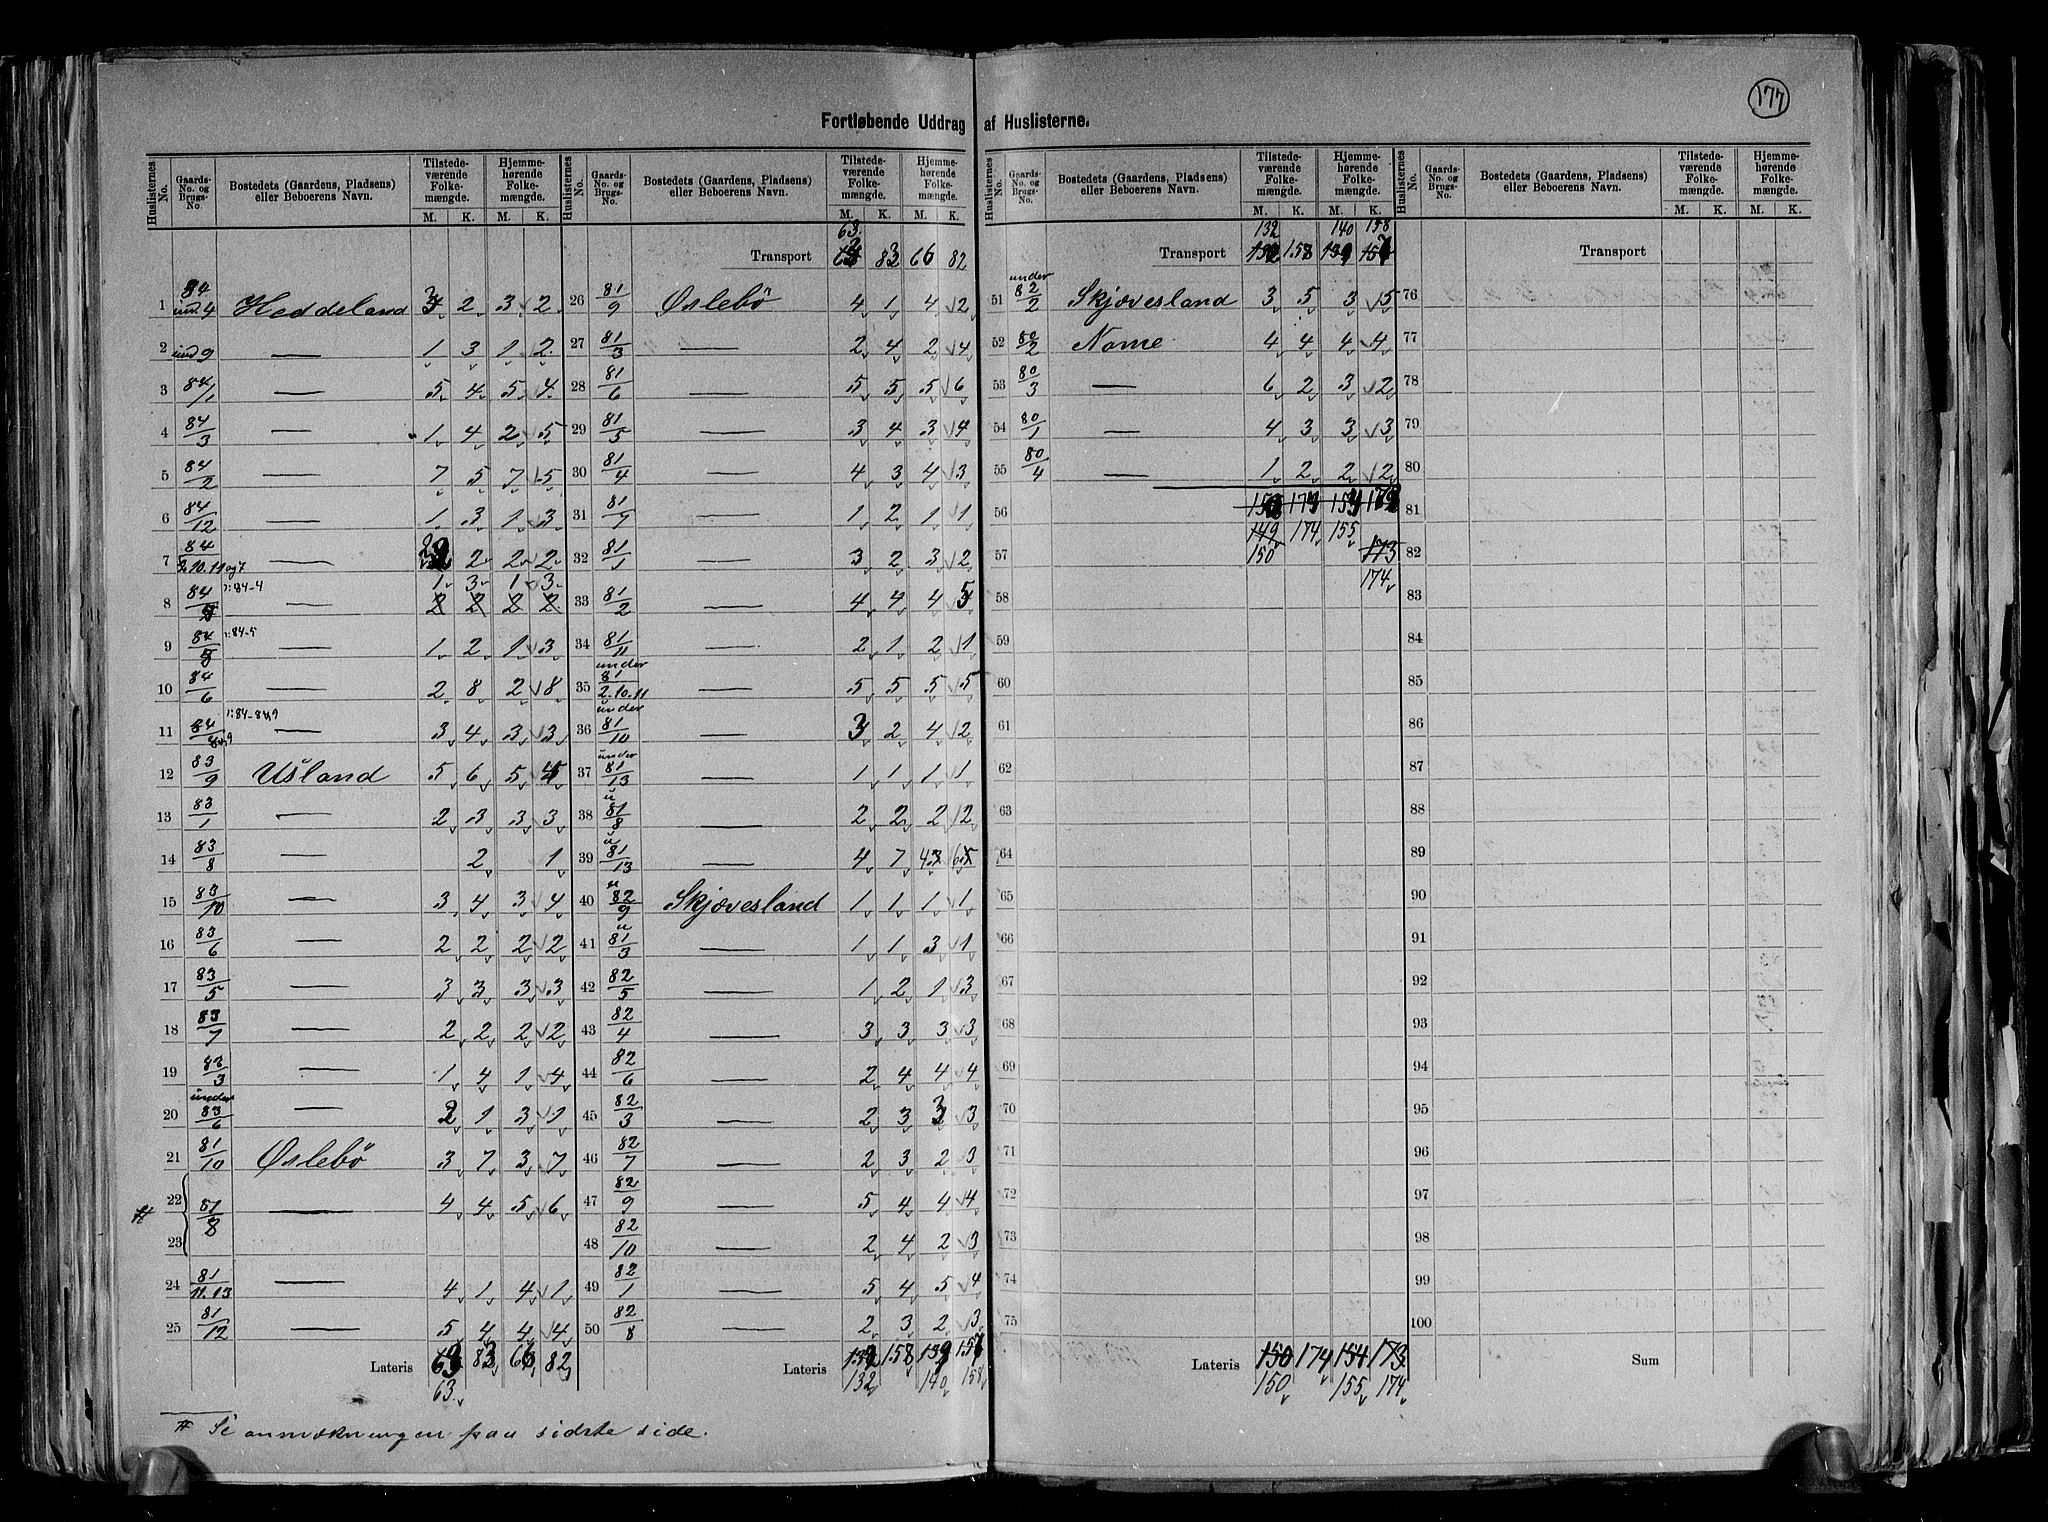 177
Fortløbende Uddrag af Huslisterne.
Huslisternes No. Gaards-No. og Brugs-No. Bostedets (Gaardens, Pladsens) eller Beboerens Navn. Tilstedeværende Folkemængde. Hjemmehørende Folkemængde.
M. K. M. K.
1 84 und. 4 Heddeland 3 2 3 2
2 und 9 — 1 3 1 2
3 84/1 — 5 4 5 4
4 84/3 — 1 4 2 5
5 84/2 — 7 5 7 5
6 84/12 — 1 3 1 3
7 84 10.11 og 7 — 2 2 2 2
8 84 1:84-4 — 1 3 1 3
2 2 2 2
9 84 1:84-5 — 1 2 1 3
10 84/6 — 2 8 2 8
11 84 1:84-8.9 — 3 4 3 3
12 83/9 Usland 5 6 5
13 83/1 — 2 3 3 3
14 83/8 — 2 1
15 83/10 — 3 4 3 4
16 83/6 — 2 2 2 2
17 83/5 — 3 3 3 3
18 83/7 — 2 2 2 2
19 83/3 — 1 4 1 4
20 under 83/6 — 2 1 3 1
21 81/10 Øslebö 3 7 3 7
22 23 81/8 — 4 4 5 6
24 81/11.13 — 4 1 4 1
25 81/12 — 5 4 4 4
Lateris 83 66 82
63
# Se anmærkningen paa sidste side.
Huslisternes No. Gaards-No. og Brugs-No. Bostedets (Gaardens, Pladsens) eller Beboerens Navn. Tilstedeværende Folkemængde. Hjemmehørende Folkemængde.
M. K. M. K.
63
Transport 83 66 82
26 81/9 Øslebö 4 1 4 2
27 81/3 — 2 4 2 4
28 81/6 — 5 5 5 6
29 81/5 — 3 4 3 4
30 81/4 — 4 3 4 3
31 81/7 — 1 2 1 1
32 81/1 — 3 2 3 2
33 81/2 — 4 4 4 5
34 81/11 — 2 1 2 1
35 under 81/2.10.11 — 5 5 5 5
36 under 81/10 — 3 2 4 2
37 under 81/13 — 1 1 1 1
38 u 81/8 — 2 2 2 2
39 u 81/13 — 4 7 4 6
40 u 82/9 Skjævesland 1 1 1 1
41 u 81/3 — 1 1 3 1
42 82/5 — 1 2 1 3
43 82/4 — 3 3 3 3
44 82/6 — 2 4 4 4
45 82/3 — 2 3 3 3
46 82/7 — 2 3 2 3
47 82/9 — 5 4 4 4
48 82/10 — 2 4 2 3
49 82/1 — 5 4 5 4
50 82/8 — 2 3 2 3
Lateris 158 139 157
132 140 158
Huslisternes No. Gaards-No. og Brugs-No. Bostedets (Gaardens, Pladsens) eller Beboerens Navn. Tilstedeværende Folkemængde. Hjemmehørende Folkemængde.
M. K. M. K.
132 140 158
Transport 132 158 139 157
51 under 82/2 Skjævesland 3 5 3 5
52 80/2 Nome 4 4 4 4
53 80/3 — 6 2 3 2
54 80/1 — 4 3 3 3
55 80/4 — 1 2 2 2
56 149 174 155
57 150 173
58 174
59
60
61
62
63
64
65
66
67
68
69
70
71
72
73
74
75
Lateris 150 174 154 173
150 155 174
Huslisternes No. Gaards-No. og Brugs-No. Bostedets (Gaardens, Pladsens) eller Beboerens Navn. Tilstedeværende Folkemængde. Hjemmehørende Folkemængde.
M. K. M. K.
Transport
76
77
78
79
80
81
82
83
84
85
86
87
88
89
90
91
92
93
94
95
96
97
98
99
100
Sum